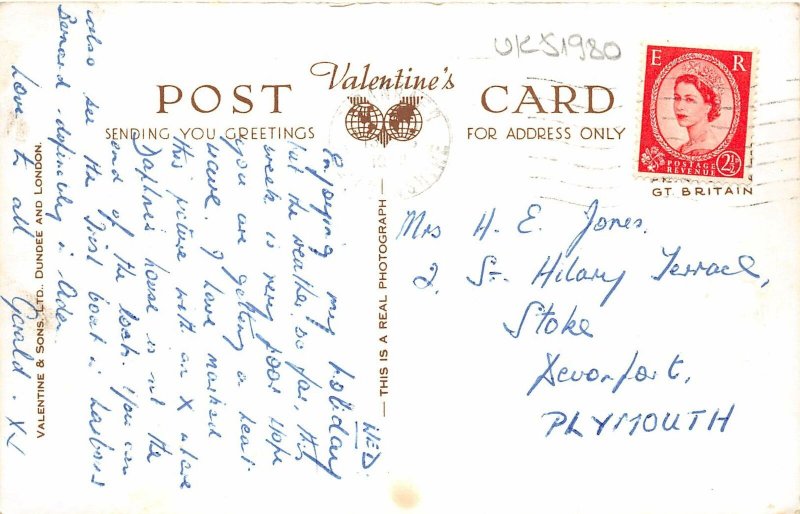 UKJ1980
Valentine's
POST CARD
SENDING YOU GREETINGS
FOR ADDRESS ONLY
E R
POSTAGE
REVENUE
2½D
GT. BRITAIN
WED.
Enjoying my holiday
but the weather so far, this
week is very poor. Hope
you are getting a heat
wave. I have marked
this picture with an X where
Daphne's house is at the
end of the loch. You can
also see the First boat in harbour
Bernard - definitely in Aden
Love to all Gerald. X
THIS IS A REAL PHOTOGRAPH
VALENTINE & SONS, LTD., DUNDEE AND LONDON.
Mrs H. E. Jones.
2. St. Hilary Terrace,
Stoke
Devonport,
PLYMOUTH